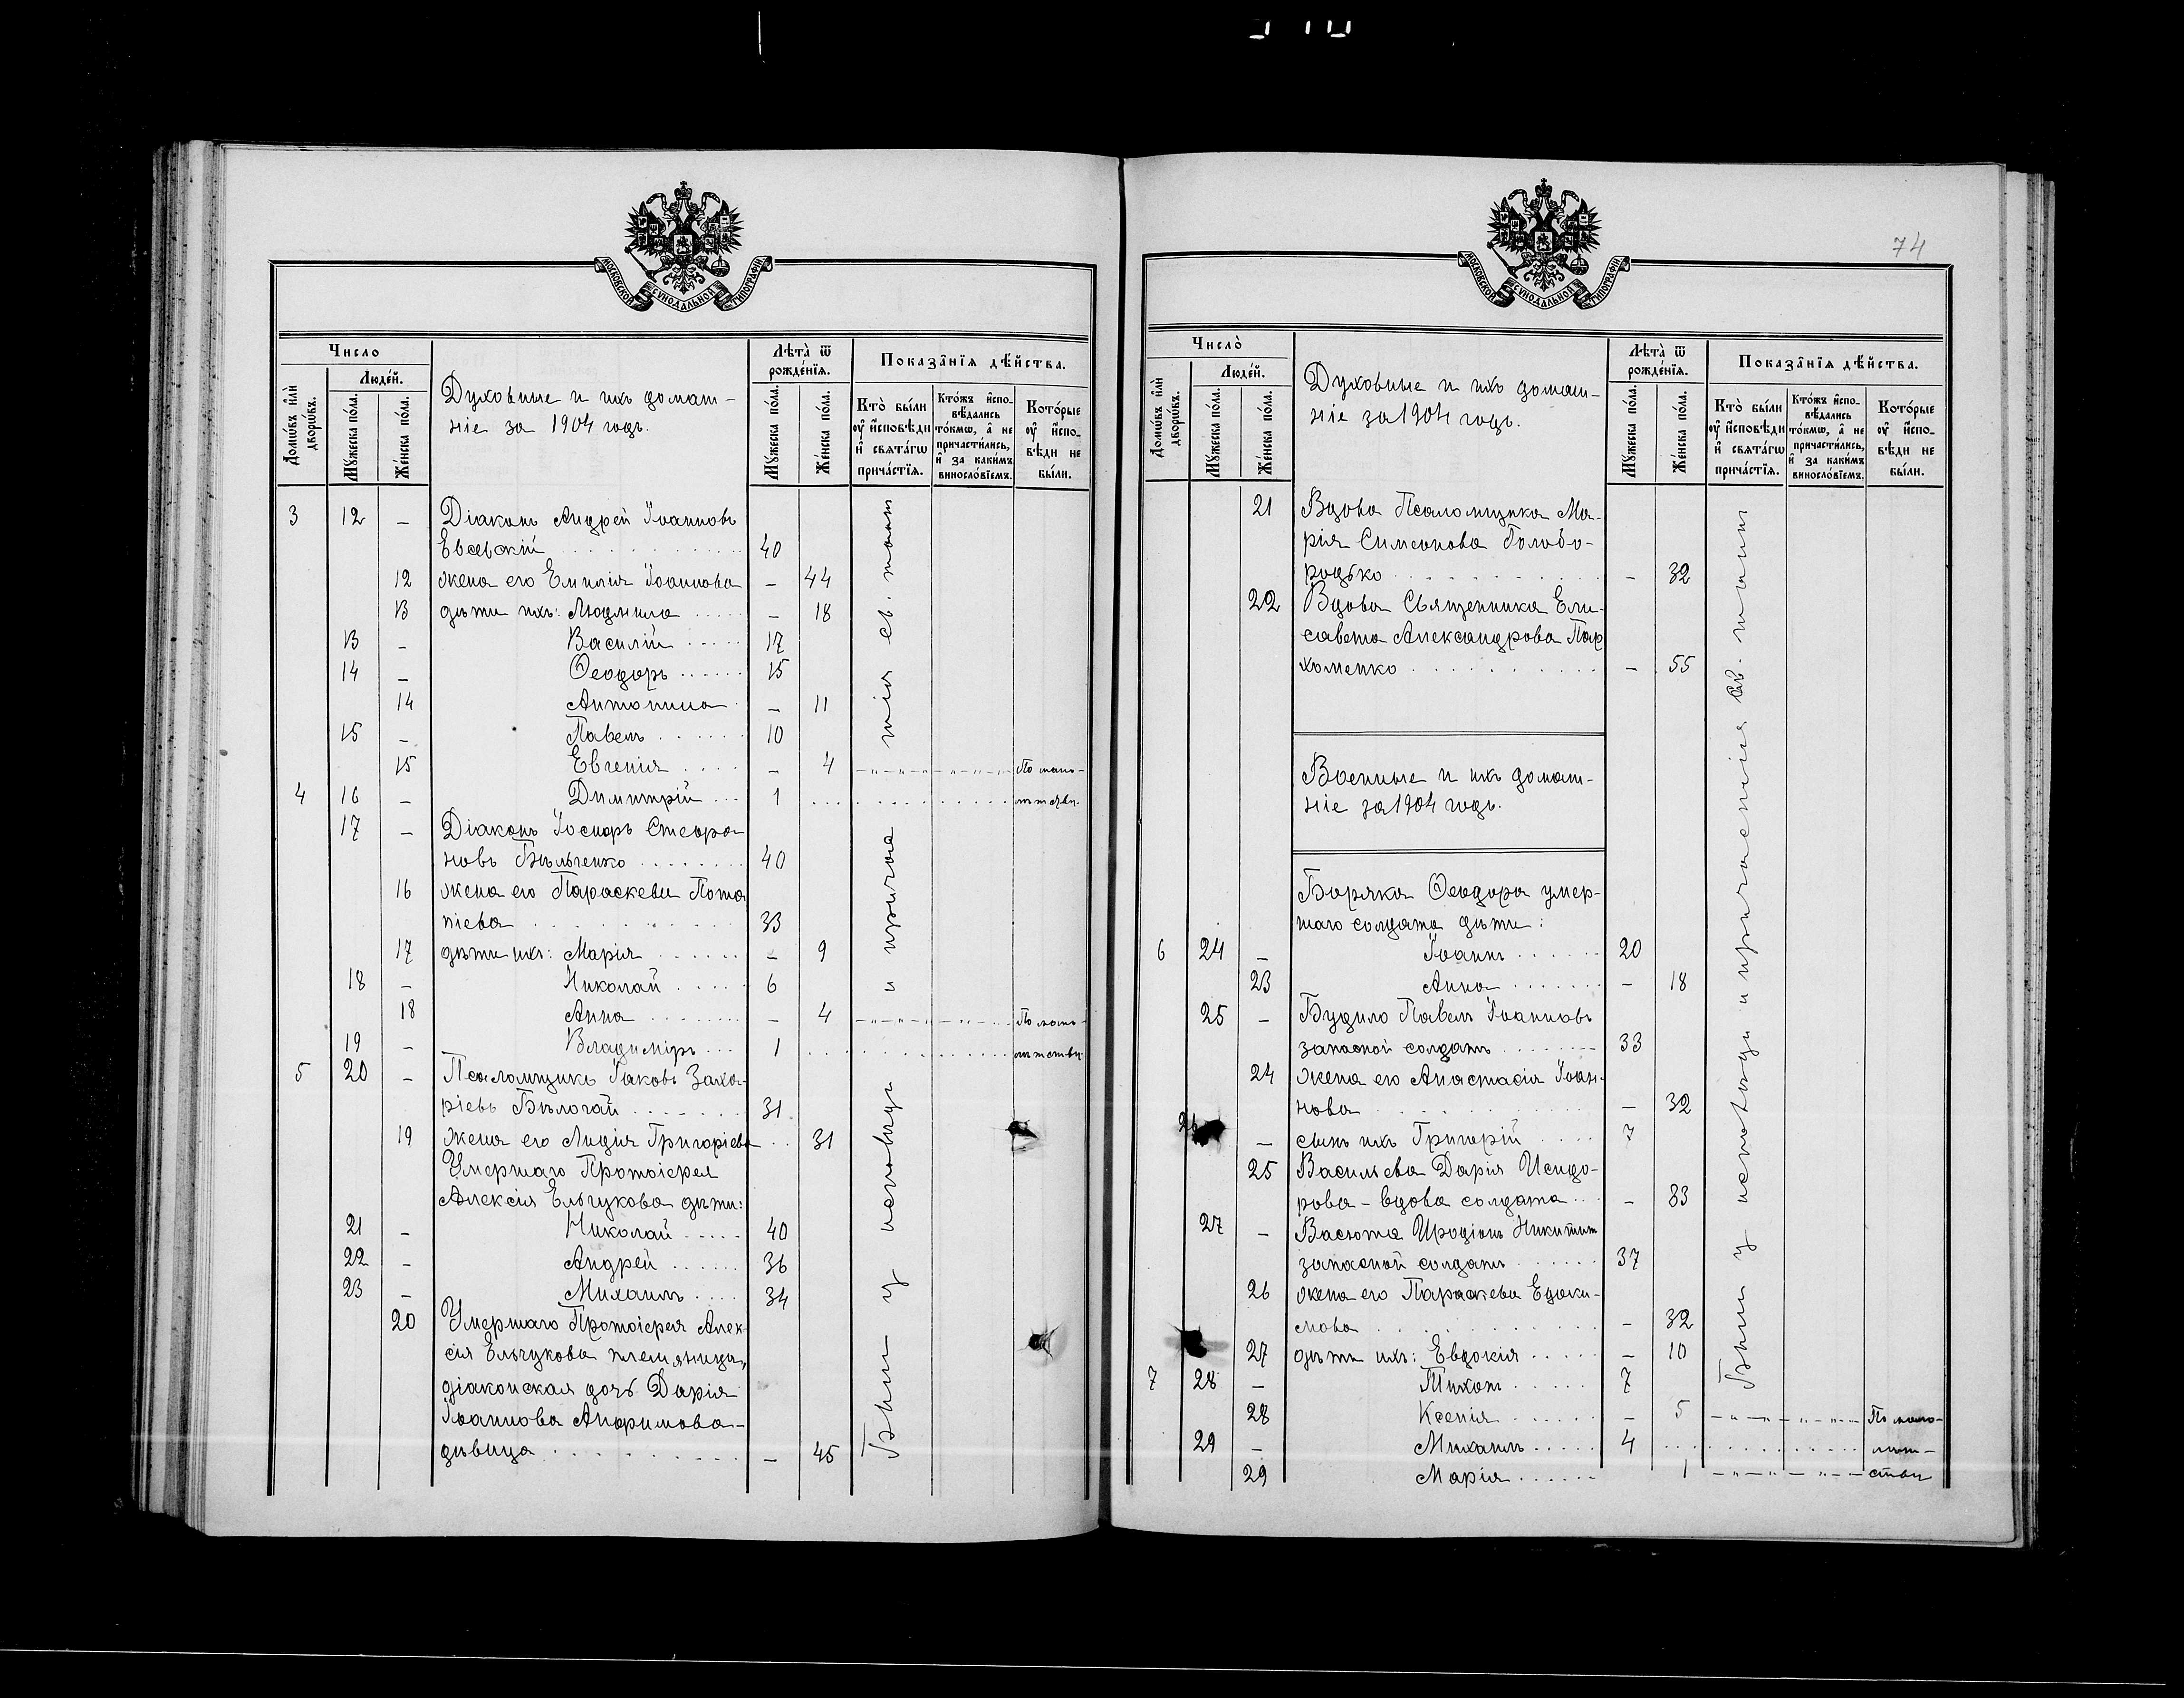 МОСКОВСКОЙ СѴНОДАЛЬНОЙ ТИПОГРАФІИ
Число
Людей.
Домѡвъ и҆лѝ дворѡвъ.
Мꙋжеска пола.
Женска пола.
Духовные и ихъ домаш-
ніе за 1904 годъ.
Лѣта ѿ рожденїя.
Мꙋжеска пола.
Женска пола.
Показанїя дѣйства.
Кто были ᲂу исповѣди и свѧтагѡ причастїѧ.
Ктожъ исповѣдались токмѡ, а не причастились, и за какимъ винословїемъ.
Которые ᲂу исповѣди не были.
3 12 – Діаконъ Андрей Іоанновъ
Евсевскій 40
12 жена его Емилія Іоаннова – 44
13 дѣти ихъ: Людмила – 18
13 – Василій 17
14 – Ѳеодоръ 15
14 Антонина – 11
15 – Павелъ 10
15 Евгенія – 4 По мало-
4 16 – Димитрій 1 лѣтству.
17 – Діаконъ Іосифъ Стефа
новъ Бѣльченко 40
16 жена его Параскева Пота
піева 33
17 дѣти ихъ: Марія – 9
18 – Николай 6
18 Анна – 4 По мало-
19 – Владиміръ 1 лѣтству.
5 20 – Псаломщикъ Іаковъ Заха-
ріевъ Бѣлогай 31
19 жена его Лидія Григоріева 31
Умершаго Протоіерея
Алексія Ельчукова дѣти:
21 – Николай 40
22 – Андрей 36
23 – Михаилъ 34
20 Умершаго Протоіерея Алек-
сія Ельчукова племяница,
діаконская дочь Дарія
Іоаннова Анфимова-
дѣвица – 45
Были у исповѣди и причастія св. таинъ
74
МОСКОВСКОЙ СѴНОДАЛЬНОЙ ТИПОГРАФІИ
Число
Людей.
Домѡвъ и҆лѝ дворѡвъ.
Мꙋжеска пола.
Женска пола.
Духовные и ихъ домаш-
ніе за 1904 годъ.
Лѣта ѿ рожденїя.
Мꙋжеска пола.
Женска пола.
Показанїя дѣйства.
Кто были ᲂу исповѣди и свѧтагѡ причастїѧ.
Ктожъ исповѣдались токмѡ, а не причастились, и за какимъ винословїемъ.
Которые ᲂу исповѣди не были.
21 Вдова Псаломщика Ма-
рія Симеонова Голобо-
родько – 32
22 Вдова Священника Ели-
савета Александрова Пар
хоменко – 55
Военные и ихъ домаш-
ніе за 1904 годъ.
Боряка Ѳеодора умер-
шаго солдата дѣти:
6 24 – Іоаннъ 20
23 Анна – 18
25 – Будило Павелъ Іоанновъ
запасной солдатъ 33
24 жена его Анастасія Іоан-
нова – 32
26 – сынъ ихъ Григорій 7
25 Васильева Дарія Исидо-
рова – вдова солдата – 83
27 – Васюта Иродіонъ Никитинъ
запасной солдатъ 37
26 жена его Параскева Едоки-
мова – 32
27 дѣти ихъ: Евдокія – 10
7 28 – Тихонъ 7
28 Ксенія – 5 По мало-
29 – Михаилъ 4 лѣт-
29 Марія 1 ству
Были у исповѣди и причастія св. таинъ